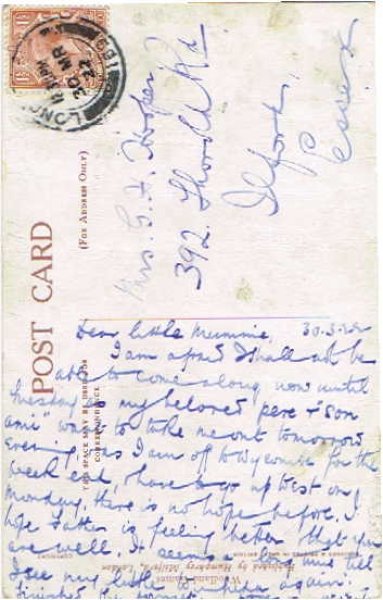 POST CARD
(FOR ADDRESS ONLY)
THIS SPACE MAY BE USED FOR
CORRESPONDENCE
LON
30 MR
22
Mrs. G. H. Hooper
392. Thorold Rd
Ilford,
Essex
Dear little Mummie, 30.3.22
I am afraid I shall not be
able to come along now until
Tuesday as my beloved pere & "son
ami" want to take me out tomorrow
evening, as I am off to Wycombe for the
week end, & have to go up West on
Monday, there is no hope before. I
hope Fatter is feeling better & that you
are well. It seems time till
I see my little again.
finished the
Published by Humphrey Milford, London